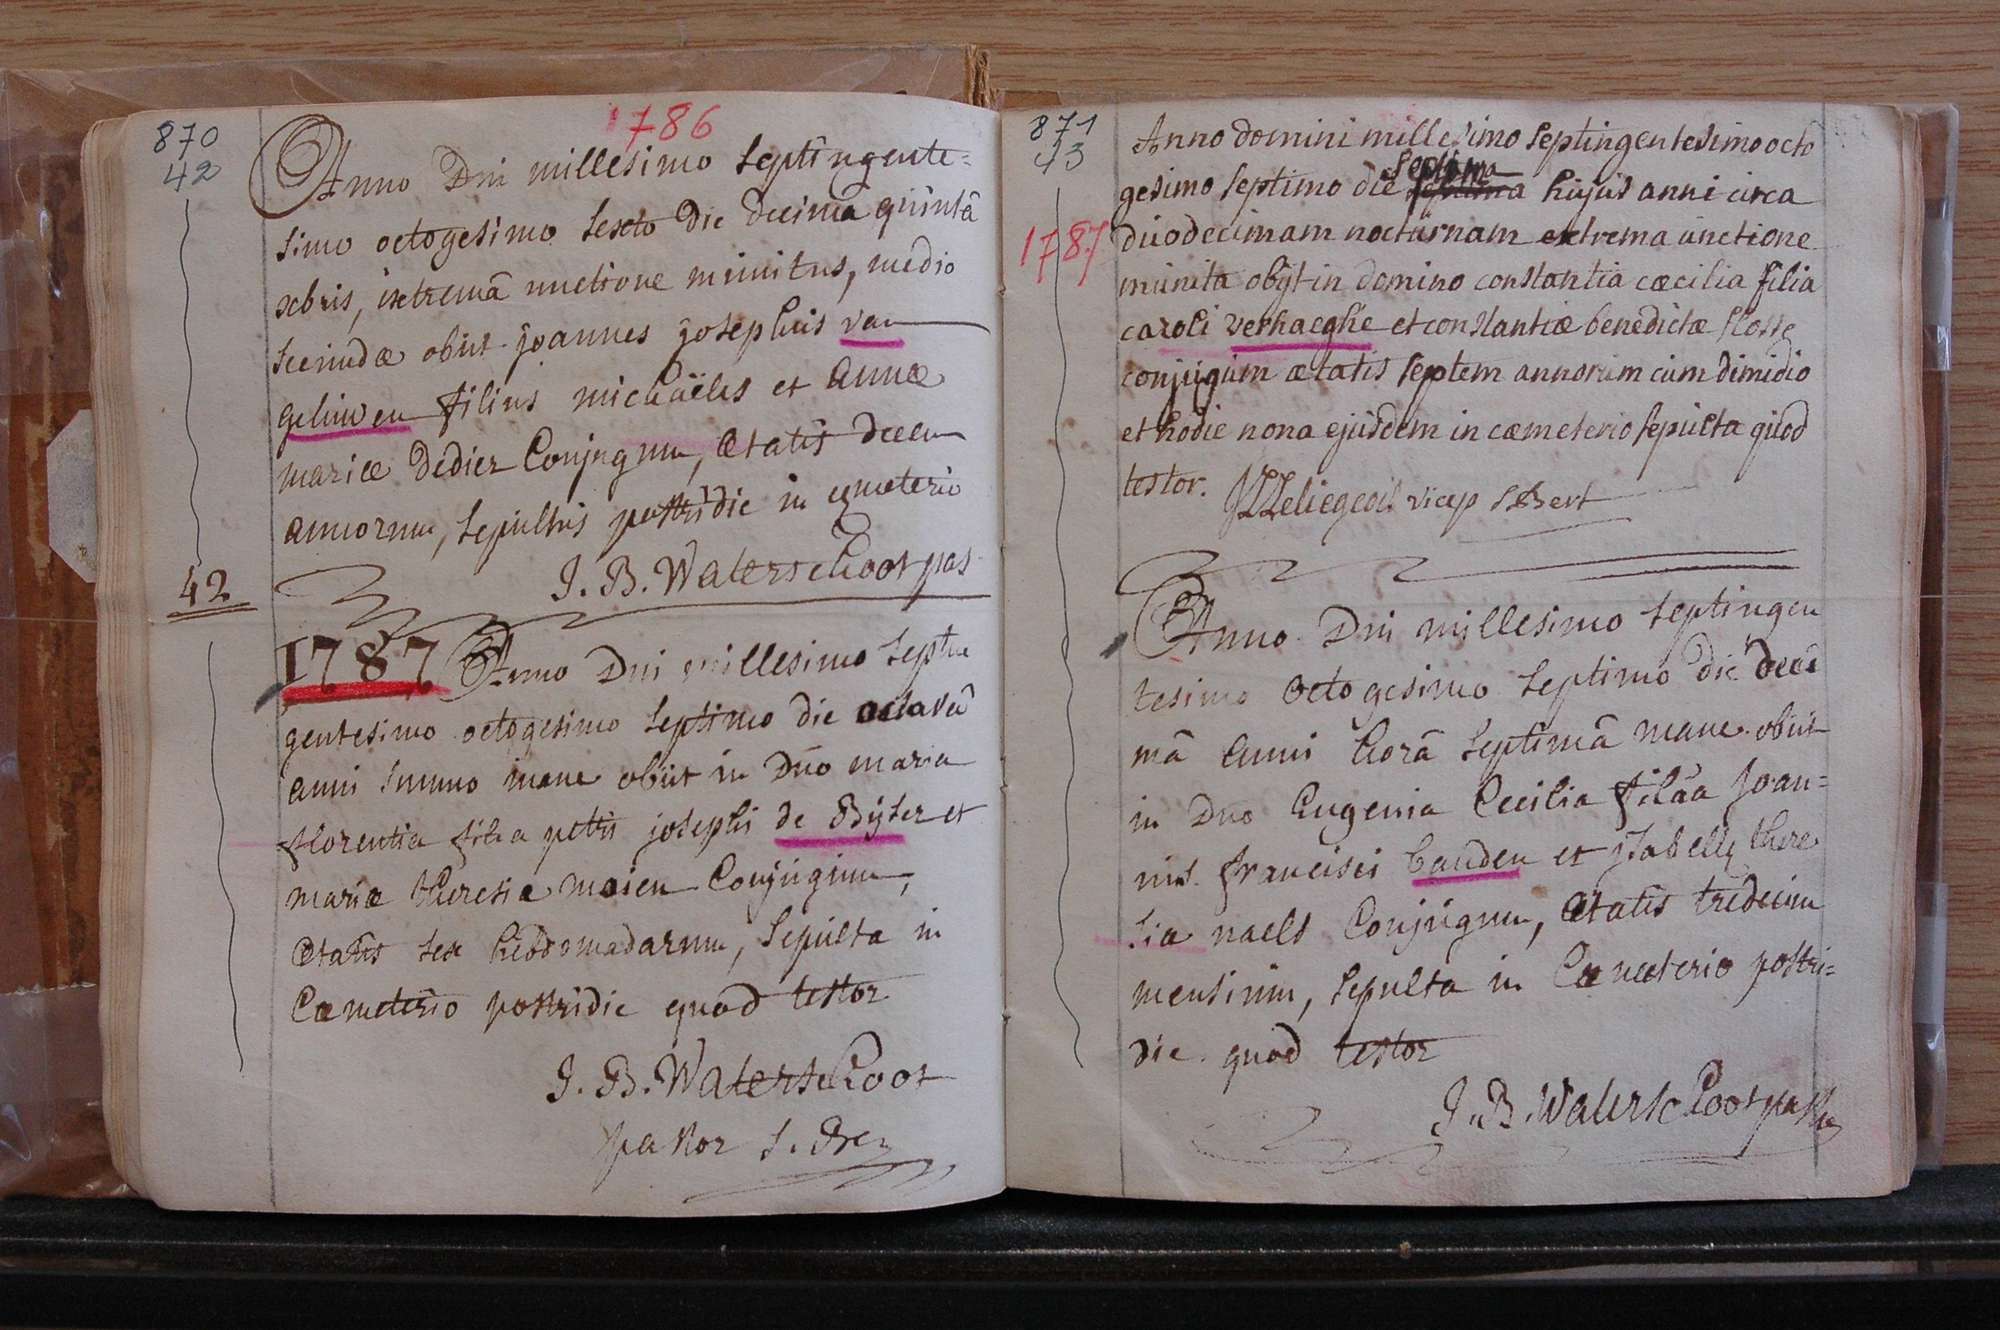 870
42
1786
Anno Dni millesimo septingente=
simo octogesimo sexto die decima quintâ
xbris, extremâ unctione munitus, medio
secundæ obiit joannes josephus van
geluwen filius michaëlis et annæ
mariæ dedier Conjugum, ætatis decem
annorum, sepultus postridie in cemeterio
J. B. Waterschoot pas
42
1787 Anno Dni millesimo septin
gentesimo octogesimo septimo die octavâ
anni summo mane obiit in Dno maria
florentia filia petri josephi de Byser et
mariæ theresiæ moien Conjugum,
ætatis sex hebdomadarum, sepulta in
Cæmeterio postridie quod testor
J. B. Waterschoot
pastor S.
871
43
1787
Anno domini millesimo septingentesimo octo
gesimo septimo die septima hujus anni circa
duodecimam nocturnam extrema unctione
munita obyt in domino constantia cæcilia filia
caroli verhaeghe et constantiæ benedictæ
conjugum ætatis septem annorum cum dimidio
et hodie nona ejusdem in cæmeterio sepulta quod
testor. vicep SBert
Anno Dni millesimo septingen
tesimo octogesimo septimo die deci
mâ anni horâ septimâ mane obiit
in Dno Eugenia Cecilia filia joan=
nis francisci Cauden et jsabellæ there
sia naels Conjugum, ætatis tredecim
mensium, sepulta in Cæmeterio postri=
die quod testor
J. B. Waterschoot pastor